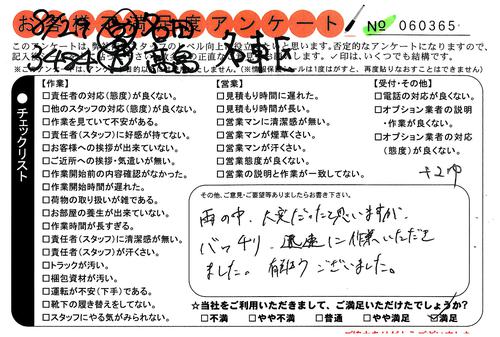 お客様不満足度アンケート
No 060365
このアンケートは、弊社スタッフのレベル向上に役立たせたいと思います。否定的なアンケートになりますので、
正直な
します。✓印は、いくつでも結構です。
【作業】
□責任者の対応(態度)が良くない。
□他のスタッフの対応(態度)が良くない。
□作業を見ていて不安がある。
□責任者(スタッフ)に好感が持てない。
□お客様への挨拶が出来ていない。
□ご近所への挨拶・気遣いが無い。
□作業開始前の内容確認がなかった。
□作業開始時間が遅れた。
□荷物の取り扱いが雑である。
□お部屋の養生が出来ていない。
□作業時間が長すぎる。
□責任者(スタッフ)に清潔感が無い。
□責任者(スタッフ)が汗くさい。
□トラックが汚い。
□梱包資材が汚い。
□運転が不安(下手)である。
□靴下の履き替えをしてない。
□スタッフにやる気がみられない。
【営業】
□見積もり時間に遅れた。
□見積もり時間が長い。
□営業マンに清潔感が無い。
□営業マンが煙草くさい。
□営業マンが汗くさい。
□営業態度が良くない。
□営業の説明と作業が一致してない。
【受付・その他】
□電話の対応が良くない。
□オプション業者の説明
・作業が良くない。
□オプション業者の対応
(態度)が良くない。
●チェックリスト
その他、ご意見・ご要望等ありましたらお書き下さい。
雨の中、大変だったと思いますが、
バッチリ、迅速に作業いただき
ました。有難うございました。
☆当社をご利用いただきまして、ご満足いただけたでしょうか?
□不満 □やや不満 □普通 □やや満足 ☑満足